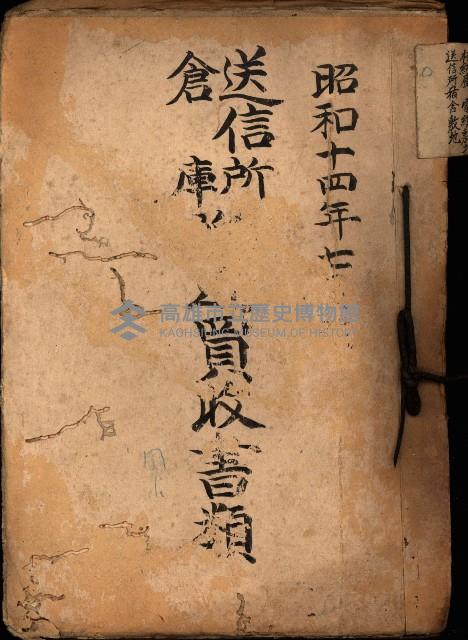 昭和十四年七
送信所
倉庫
買收書類
送信所宿舍敷地
高雄市立歷史博物館
KAOHSIUNG MUSEUM OF HISTORY